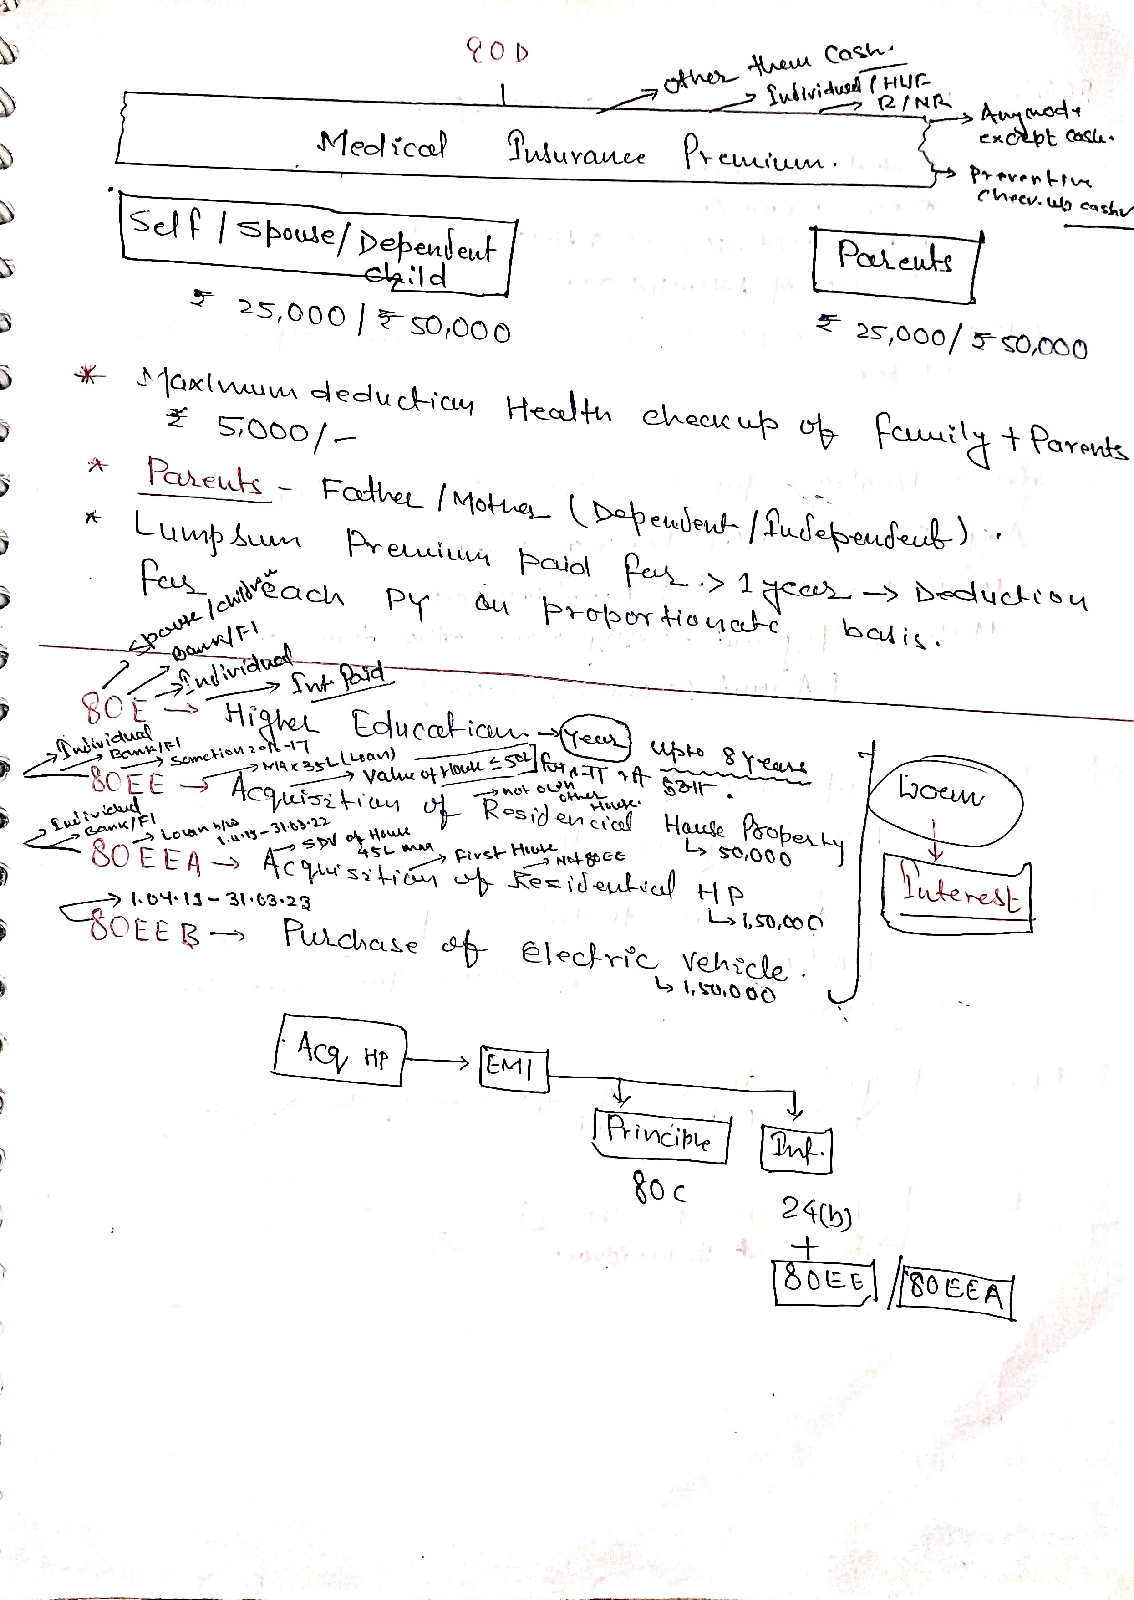 80D
other them Cash.
Individual / HUF
R/NR
Any mode
except cash.
Medical Insurance Premium.
Preventive
Check-up cash✓
Self / Spouse / Dependent
Child
Parents
₹ 25,000 / ₹ 50,000
₹ 25,000 / ₹ 50,000
* Maximum deduction Health checkup of family + Parents
₹ 5,000/-
* Parents - Father / Mother (Dependent / Independent).
* Lumpsum Premium paid for > 1 year → Deduction
for each PY on proportionate basis.
spouse / children
Bank/FI
Individual
Int Paid
80E → Higher Education → Year upto 8 Years
Individual
Bank/FI
Sanction 2016-17
Max 35L (Loan)
Value of House ≤ 50L
80EE → Acquisition of Residencial House Property
not own
other
House.
↳ 50,000
Loan
Individual
Bank/FI
1.4.19 - 31.03.22
SDV of House
45L max
First House
Not 80EE
80EEA → Acquisition of Residential HP
↳ 1,50,000
Interest
→ 1.04.19 - 31.03.23
80EEB → Purchase of Electric Vehicle.
↳ 1,50,000
Acq HP → EMI
Principle
Int.
80C
24(b)
+
80EE / 80EEA